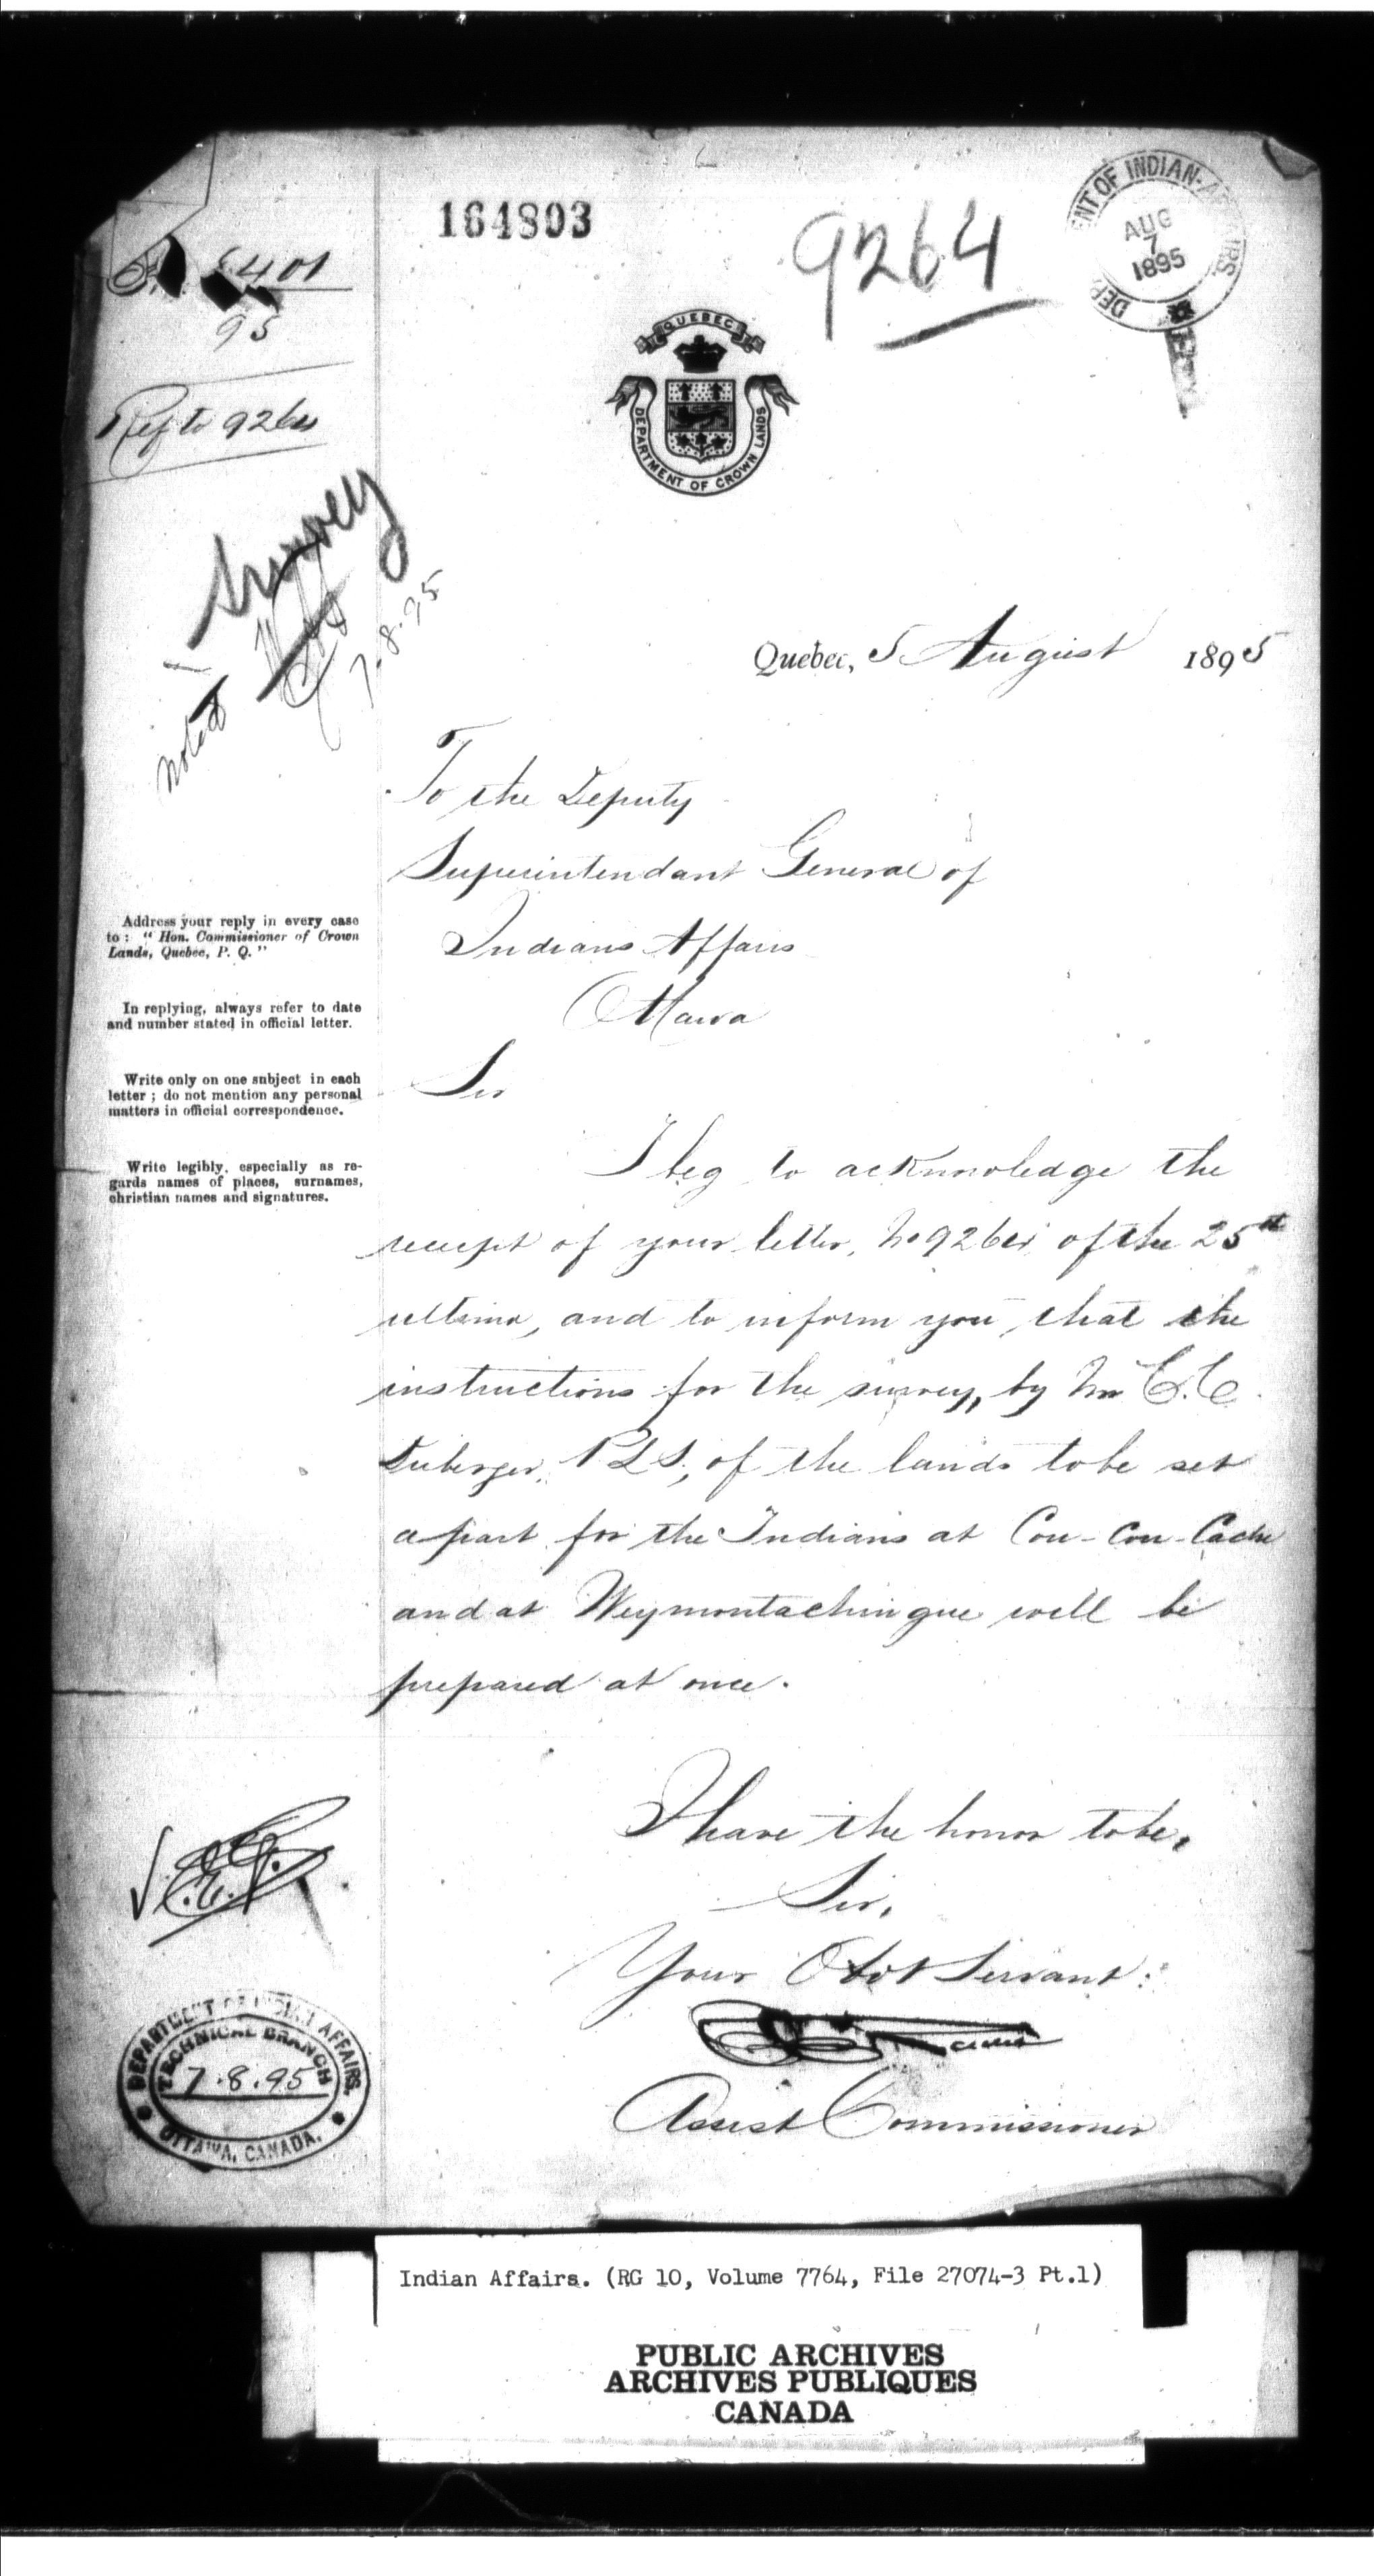 164803
9264
DEPARTMENT OF INDIAN AFFAIRS
AUG
7
1895
5401
95
Ref to 9264
QUEBEC
DEPARTMENT OF CROWN LANDS
Survey
Noted
7.8.95
Quebec, 5 August 1895
To the Deputy
Superintendant General of
Indians Affairs
Ottawa
Address your reply in every case
to: "Hon. Commissioner of Crown
Lands, Quebec, P. Q."
In replying, always refer to date
and number stated in official letter.
Write only on one subject in each
letter; do not mention any personal
matters in official correspondence.
Write legibly, especially as re-
gards names of places, surnames,
christian names and signatures.
Sir
I beg to acknowledge the
receipt of your letter, No 9264 of the 25th
ultimo, and to inform you, that the
instructions for the survey, by Mr C. C.
Duberger, P L S, of the lands to be set
apart for the Indians at Cou-Cou-Cache
and at Weymontachingue will be
prepared at once.
I have the honor to be,
Sir,
Your Obdt Servant:
Assist Commissioner
DEPARTMENT OF INDIAN AFFAIRS.
TECHNICAL BRANCH
7.8.95
OTTAWA, CANADA.
Indian Affairs. (RG 10, Volume 7764, File 27074-3 Pt.1)
PUBLIC ARCHIVES
ARCHIVES PUBLIQUES
CANADA